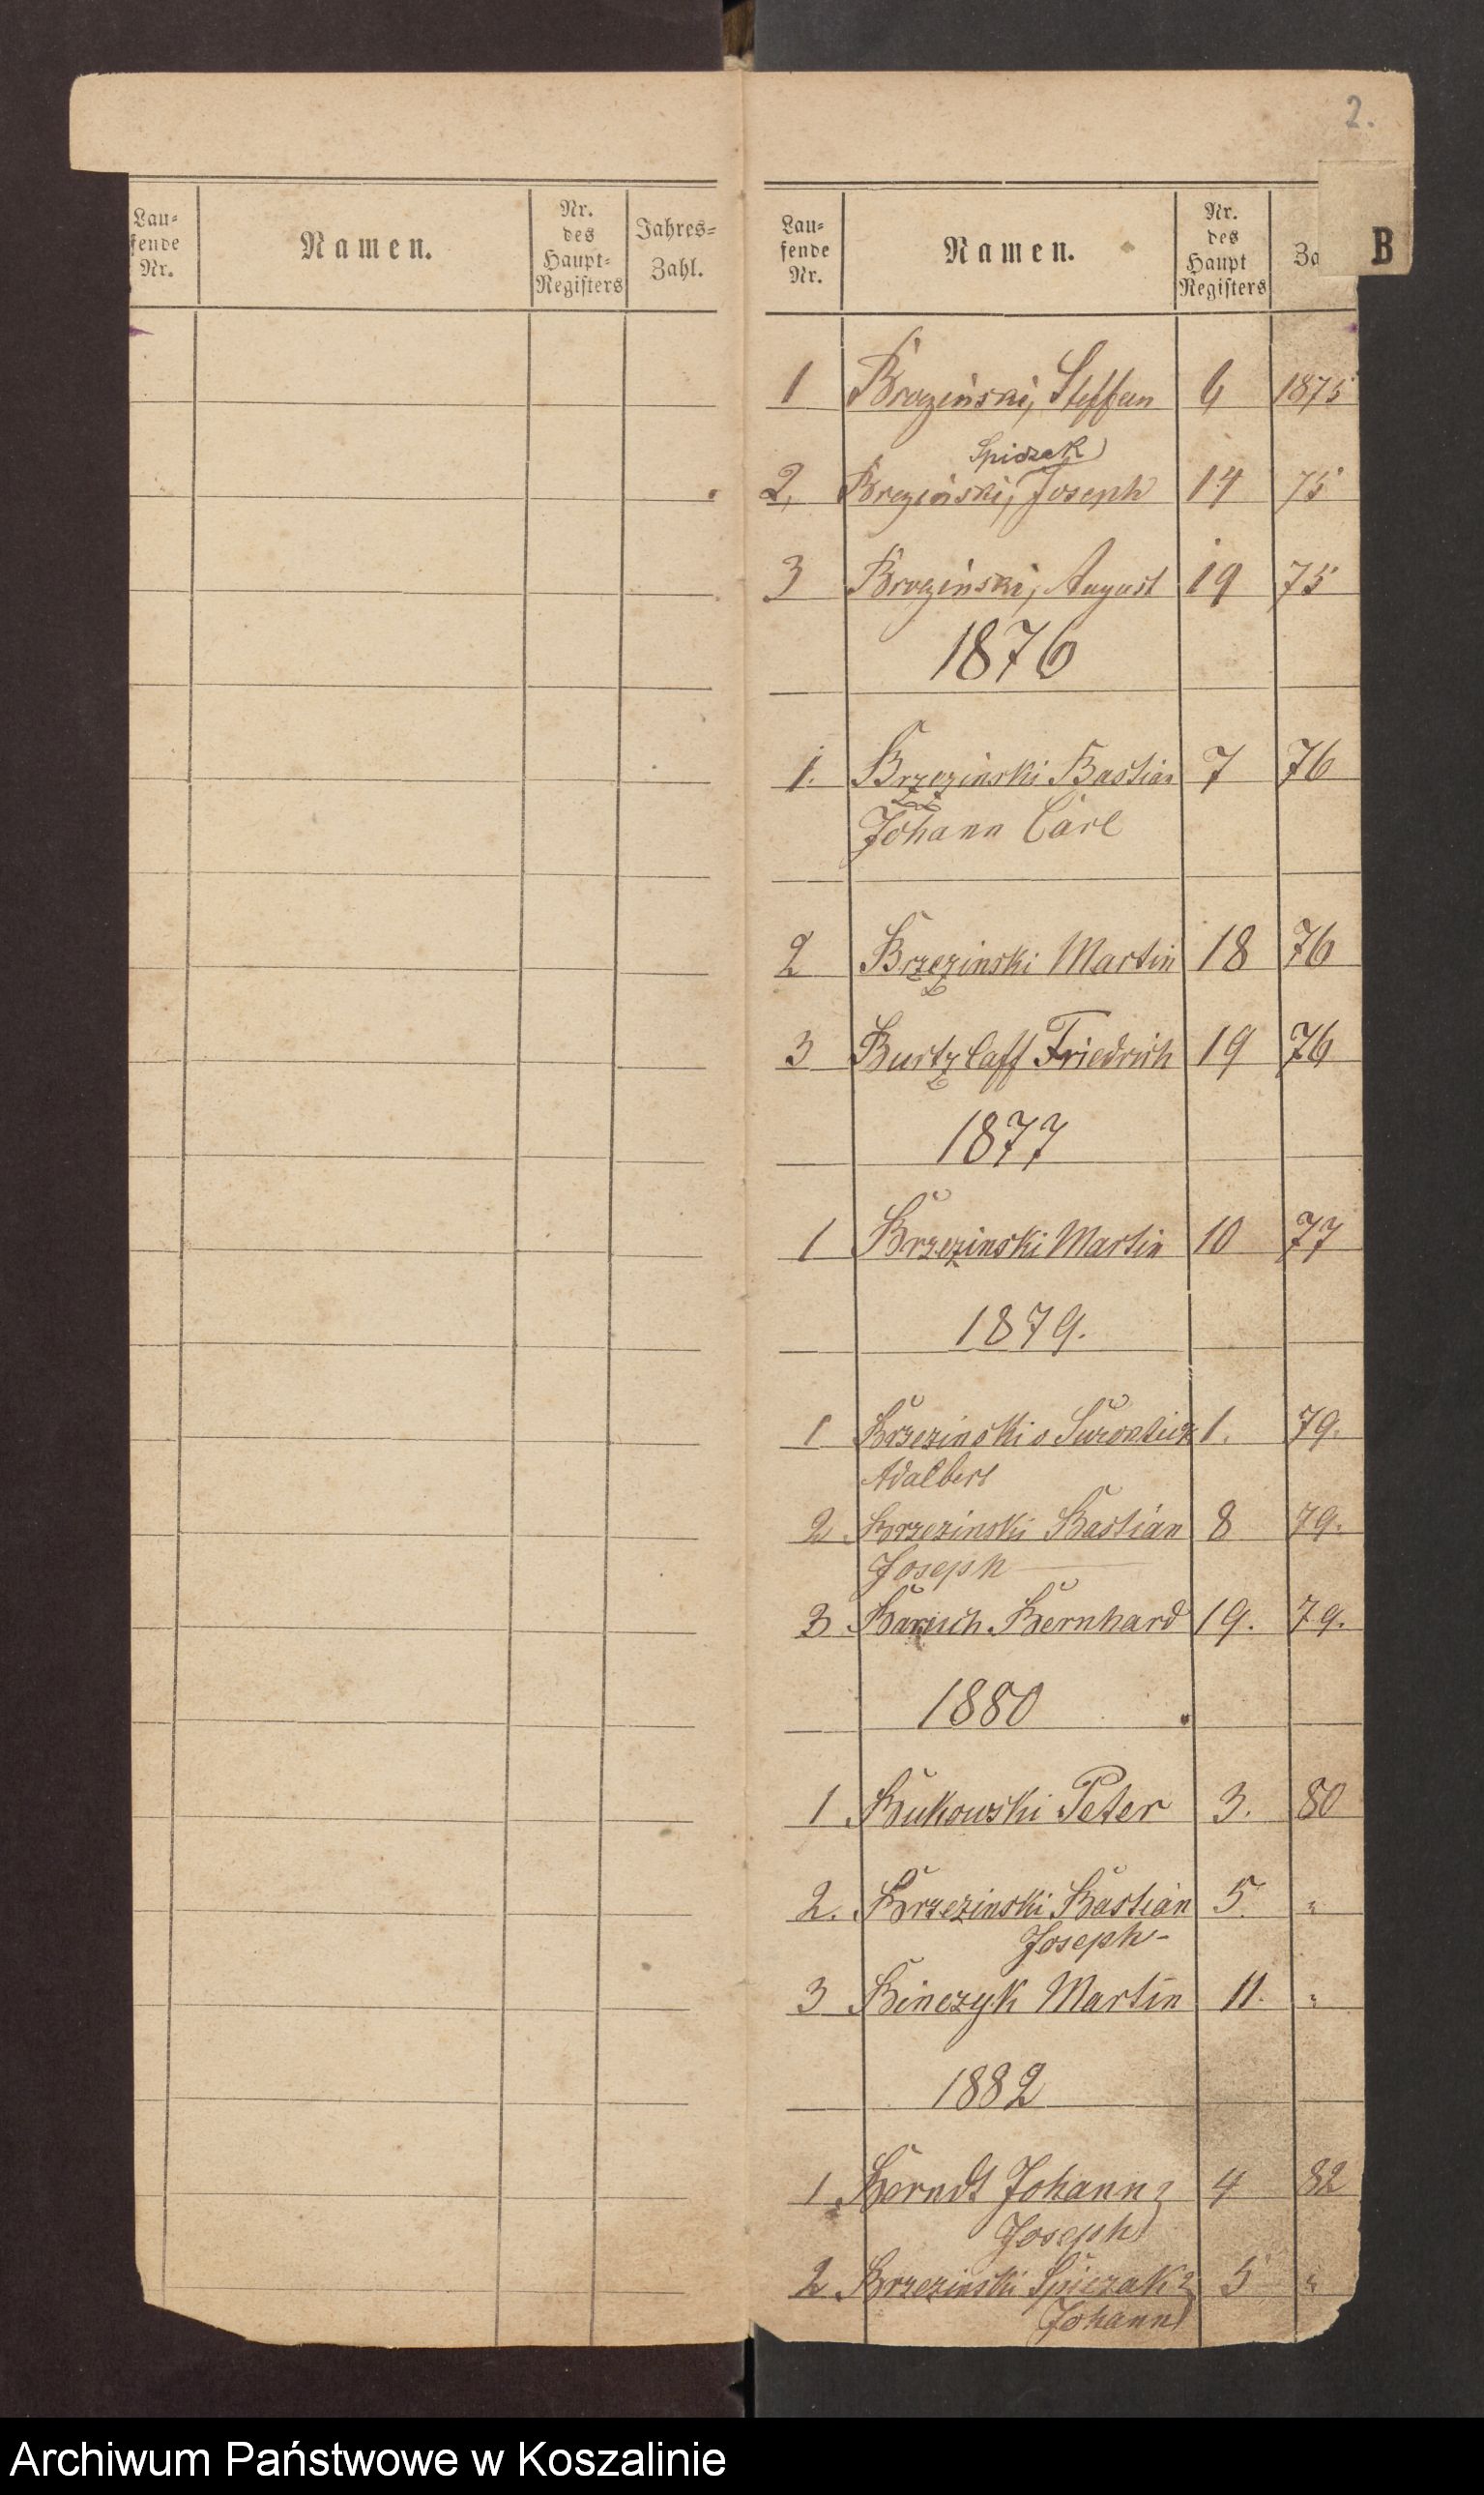 2.
Lau-
fende
Nr.
Namen.
Nr.
des
Haupt-
Registers
Jahres-
Zahl.
Lau-
fende
Nr.
Namen.
Nr.
des
Haupt
Registers
Za
B
1 Brozinski, Steffan 6 1875
Spiczak
2, Brezinski, Joseph 14 75
3 Brozinski, August 19 75
1876
1. Brzezinski Bastian 7 76
Johann Carl
2 Brzezinski Martin 18 76
3 Burtzlaff Friedrich 19 76
1877
1 Brzezinski Martin 10 77
1879.
1 Brzezinski 1. 79.
Adalbert
2 Brzezinski Bastian 8 79.
Joseph
3 Bernhard 19. 79.
1880
1 Bukowski Peter 3. 80
2. Brzezinski Bastian 5. "
Joseph-
3 Binczyk Martin 11. "
1882
1 Berndt Johann 4 82
Joseph
2 Brzezinski Spiczak 5 "
Johann
Archiwum Państwowe w Koszalinie